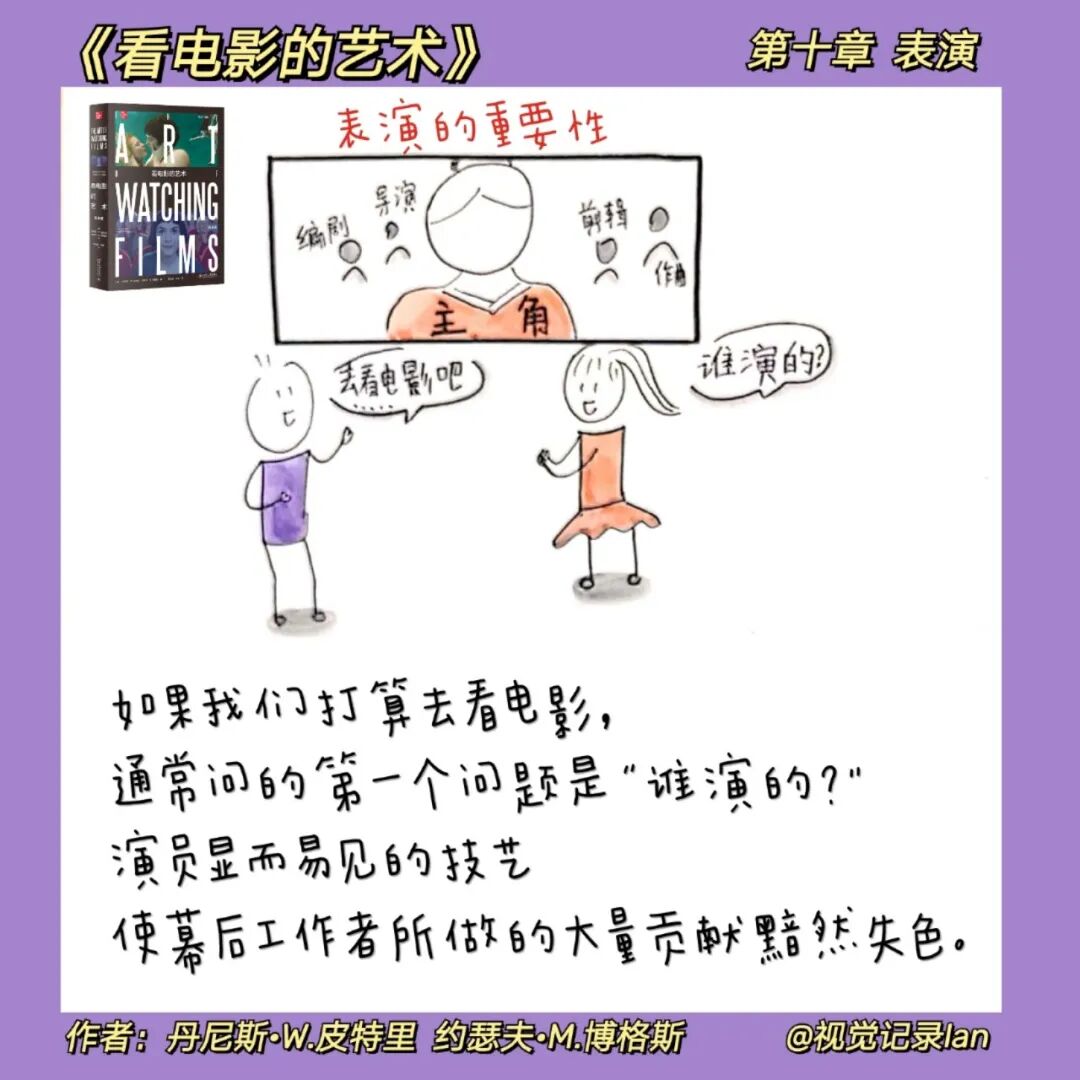 《看电影的艺术》
第十章 表演
ART
OF
看电影的艺术
WATCHING
FILMS
表演的重要性
编剧
导演
剪辑
作曲
主角
去看电影吧
......
谁演的?
如果我们打算去看电影,
通常问的第一个问题是“谁演的?”
演员显而易见的技艺
使幕后工作者所做的大量贡献黯然失色。
作者：丹尼斯·W.皮特里 约瑟夫·M.博格斯
@视觉记录Ian